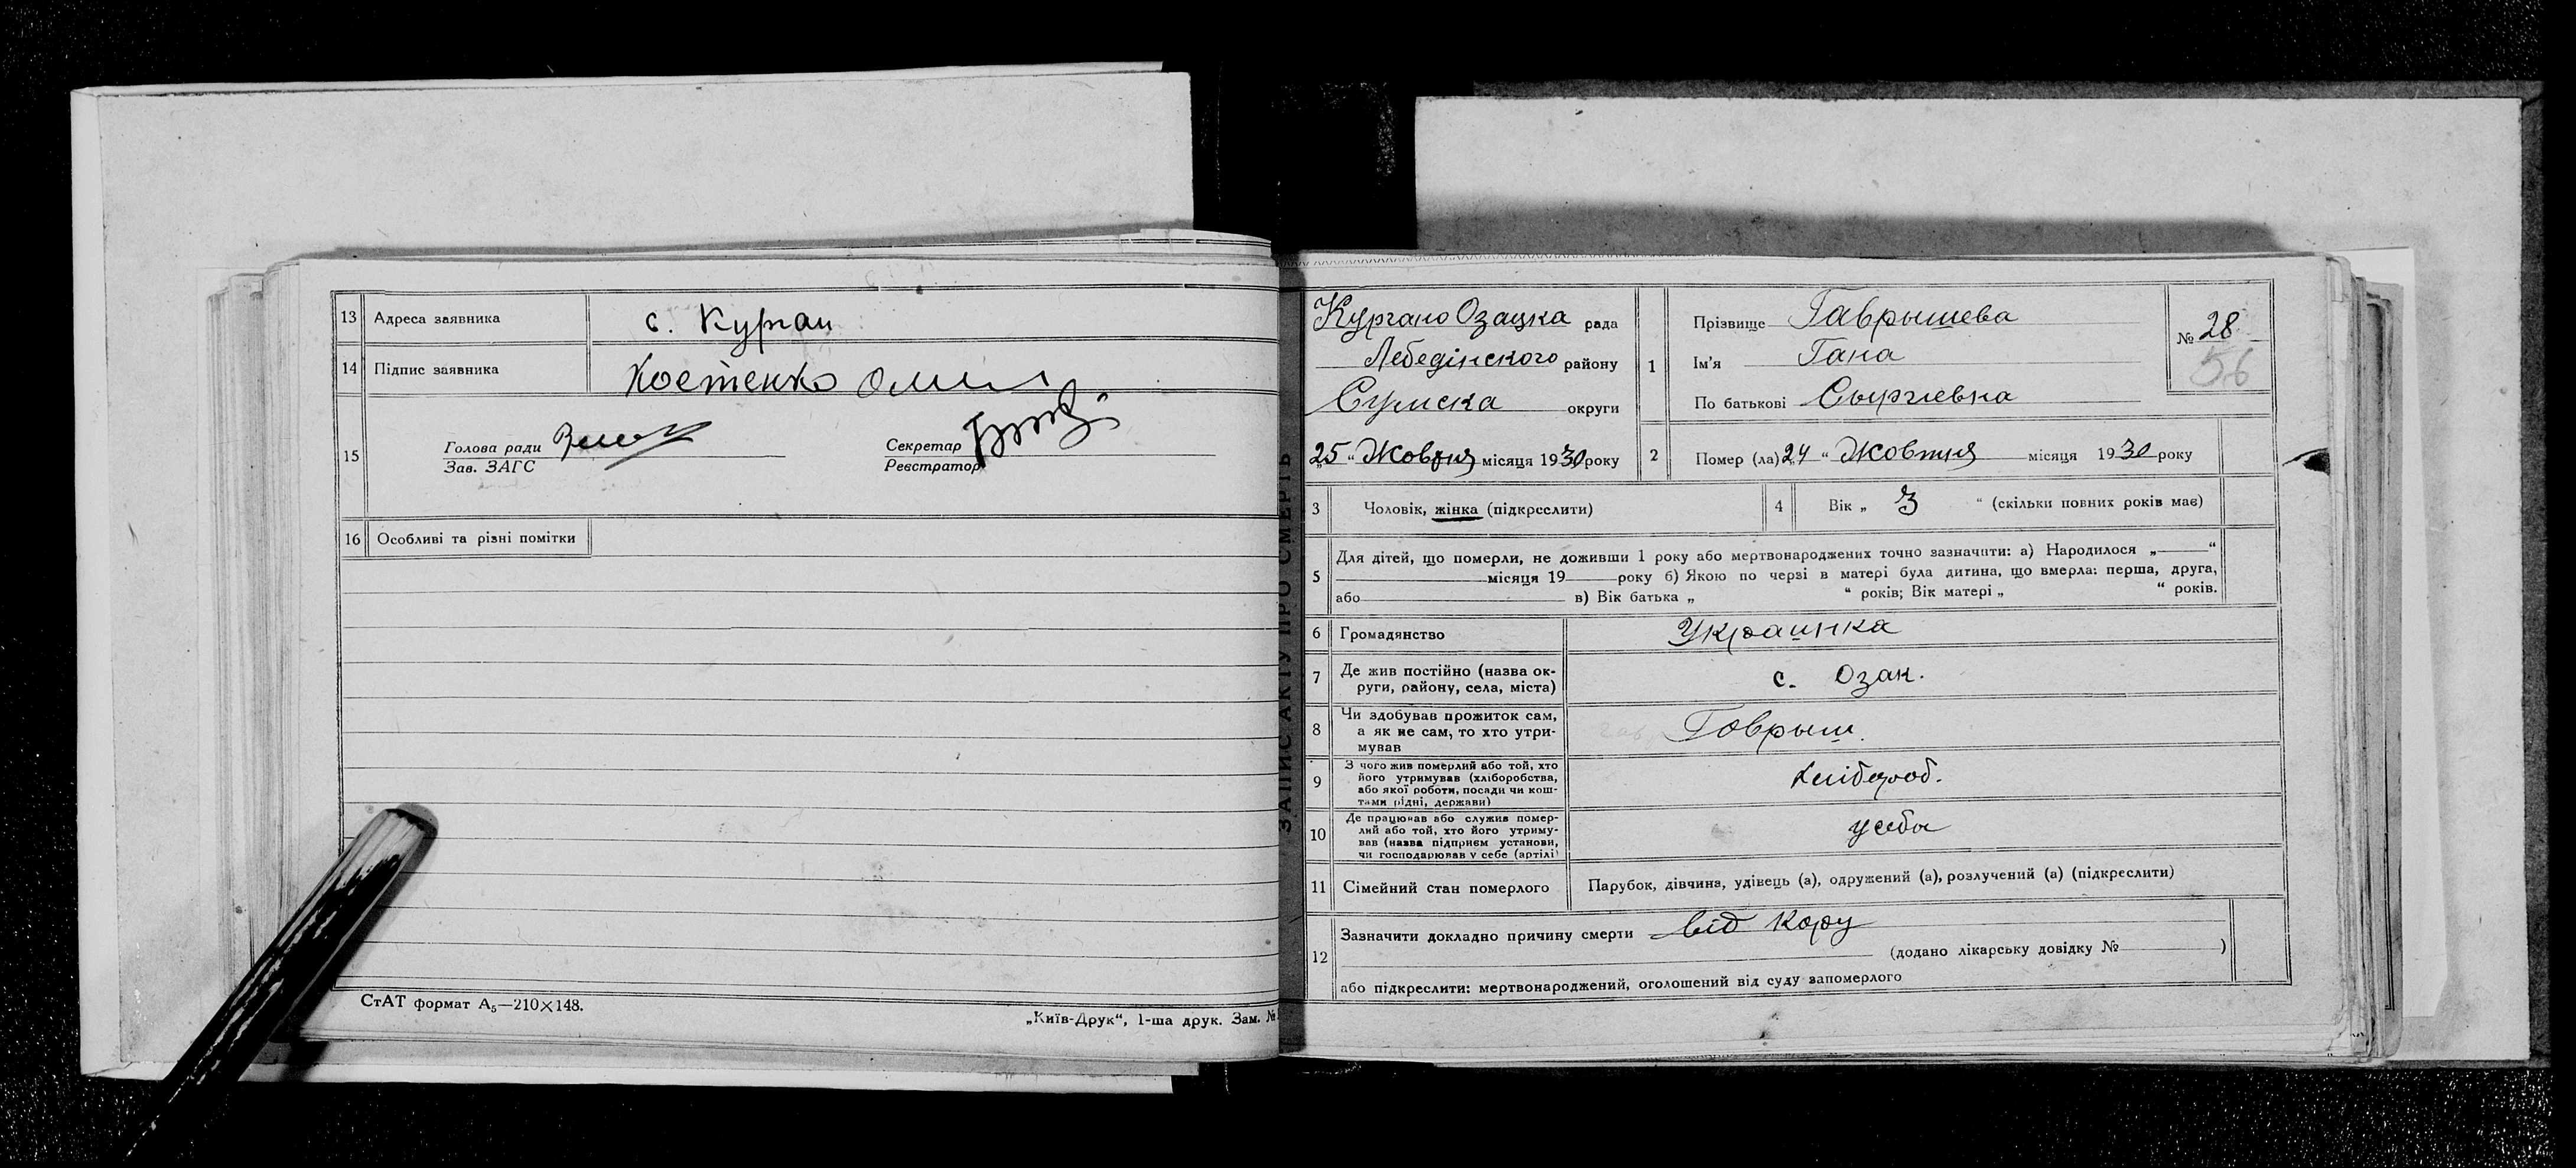 13 Адреса заявника с. Курган
14 Підпис заявника Костенко
15 Голова ради
Зав. ЗАГС
Секретар
Реєстратор
16 Особливі та різні помітки
СтАТ формат А₅—210×148.
„Київ-Друк“, 1-ша друк. Зам. №
ЗАПИС АКТУ ПРО СМЕРТЬ
Кургано Озацка рада
Лебедінского району
Сумска округи
„25“ Жовтня місяця 1930 року
1 Прізвище Гаврышева
Ім'я Гана
По батькові Сыргіевна
№ 28
56
2 Помер (ла) „24“ Жовтня місяця 1930 року
3 Чоловік, жінка (підкреслити)
4 Вік „ 3 “ (скільки повних років має)
5 Для дітей, що померли, не доживши 1 року або мертвонароджених точно зазначити: а) Народилося „ “
місяця 19 року б) Якою по черзі в матері була дитина, що вмерла: перша, друга,
або в) Вік батька „ “ років; Вік матері „ “ років.
6 Громадянство Украинка
7 Де жив постійно (назва ок-
руги, району, села, міста) с. Озак.
8 Чи здобував прожиток сам,
а як не сам, то хто утри-
мував Говрыш.
9 З чого жив померлий або той, хто
його утримував (хліборобства,
або якої роботи, посади чи кош-
тами рідні, держави)
10 Де працював або служив помер-
лий або той, хто його утриму-
вав (назва підприєм установи,
чи господарював у себе (артілі) усебя
11 Сімейний стан померлого Парубок, дівчина, удівець (а), одружений (а), розлучений (а) (підкреслити)
12 Зазначити докладно причину смерти від кору
(додано лікарську довідку № )
або підкреслити: мертвонароджений, оголошений від суду запомерлого